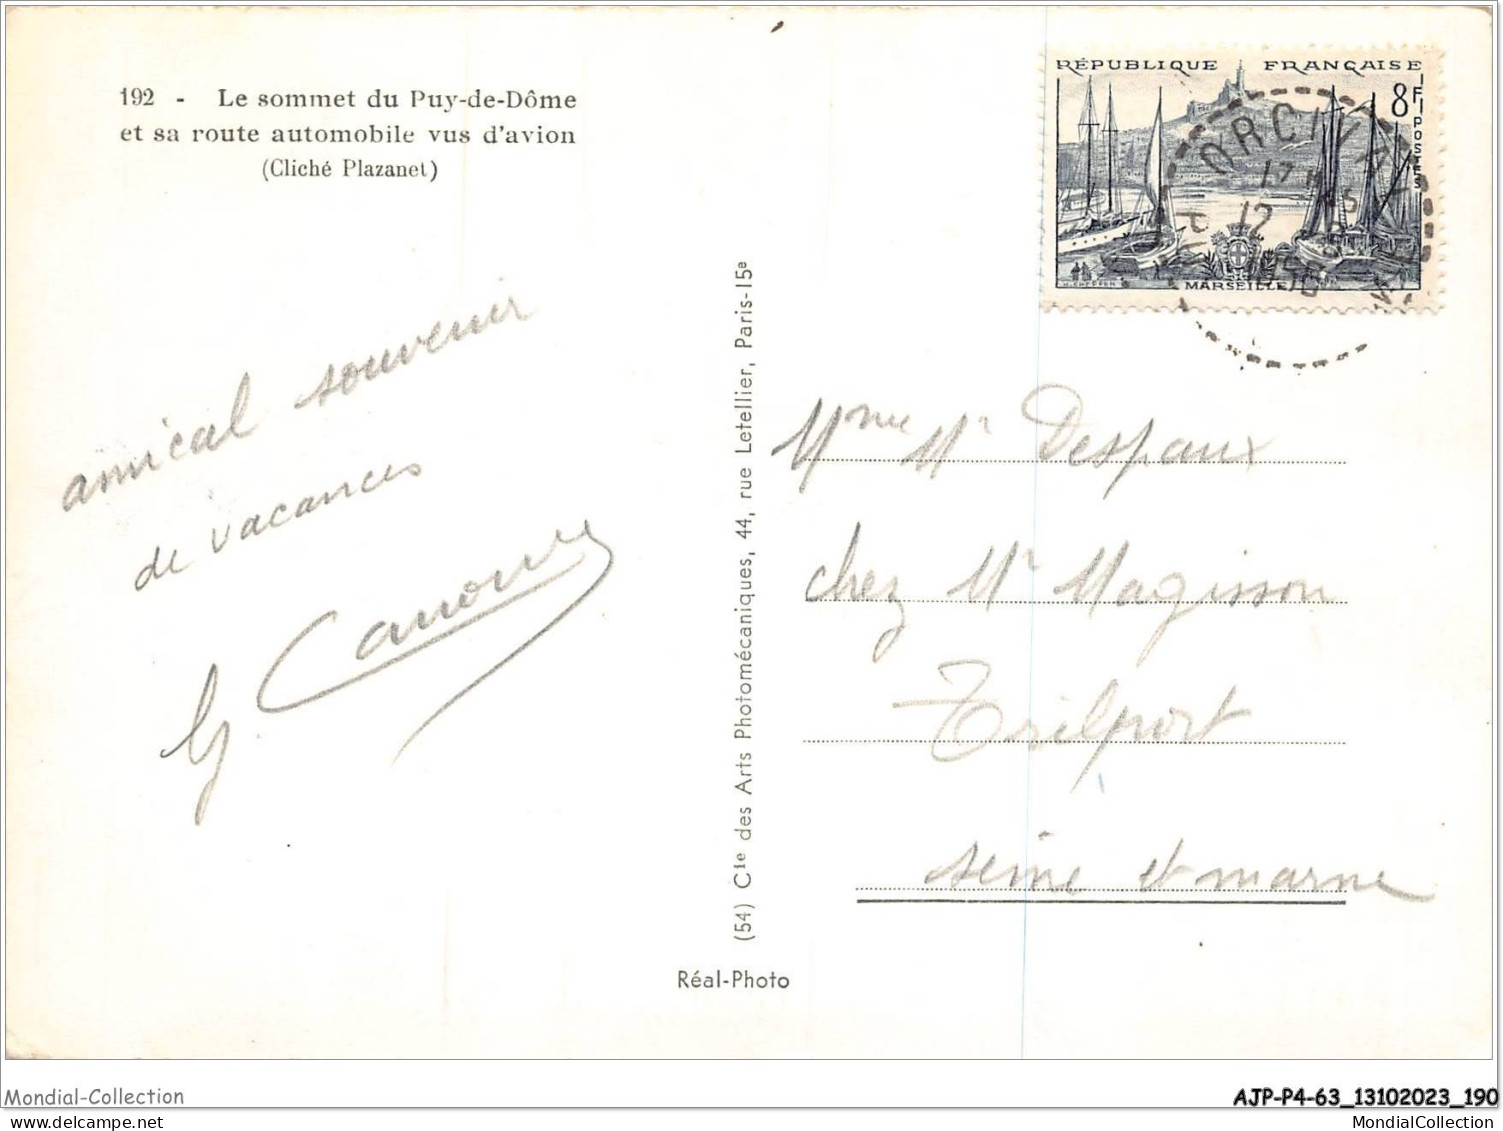 192 - Le sommet du Puy-de-Dôme
et sa route automobile vus d'avion
(Cliché Plazanet)
RÉPUBLIQUE FRANÇAISE
8F
POSTES
MARSEILLE
ORCIVAL
12
amical souvenir
de vacances
(54) Cie des Arts Photomécaniques, 44, rue Letellier, Paris-15e
Mme Mr Despaux
chez Mr Magisson
Trilport
seine et marne
Réal-Photo
Mondial-Collection
AJP-P4-63_13102023_190
mondial-collection.com
MondialCollection